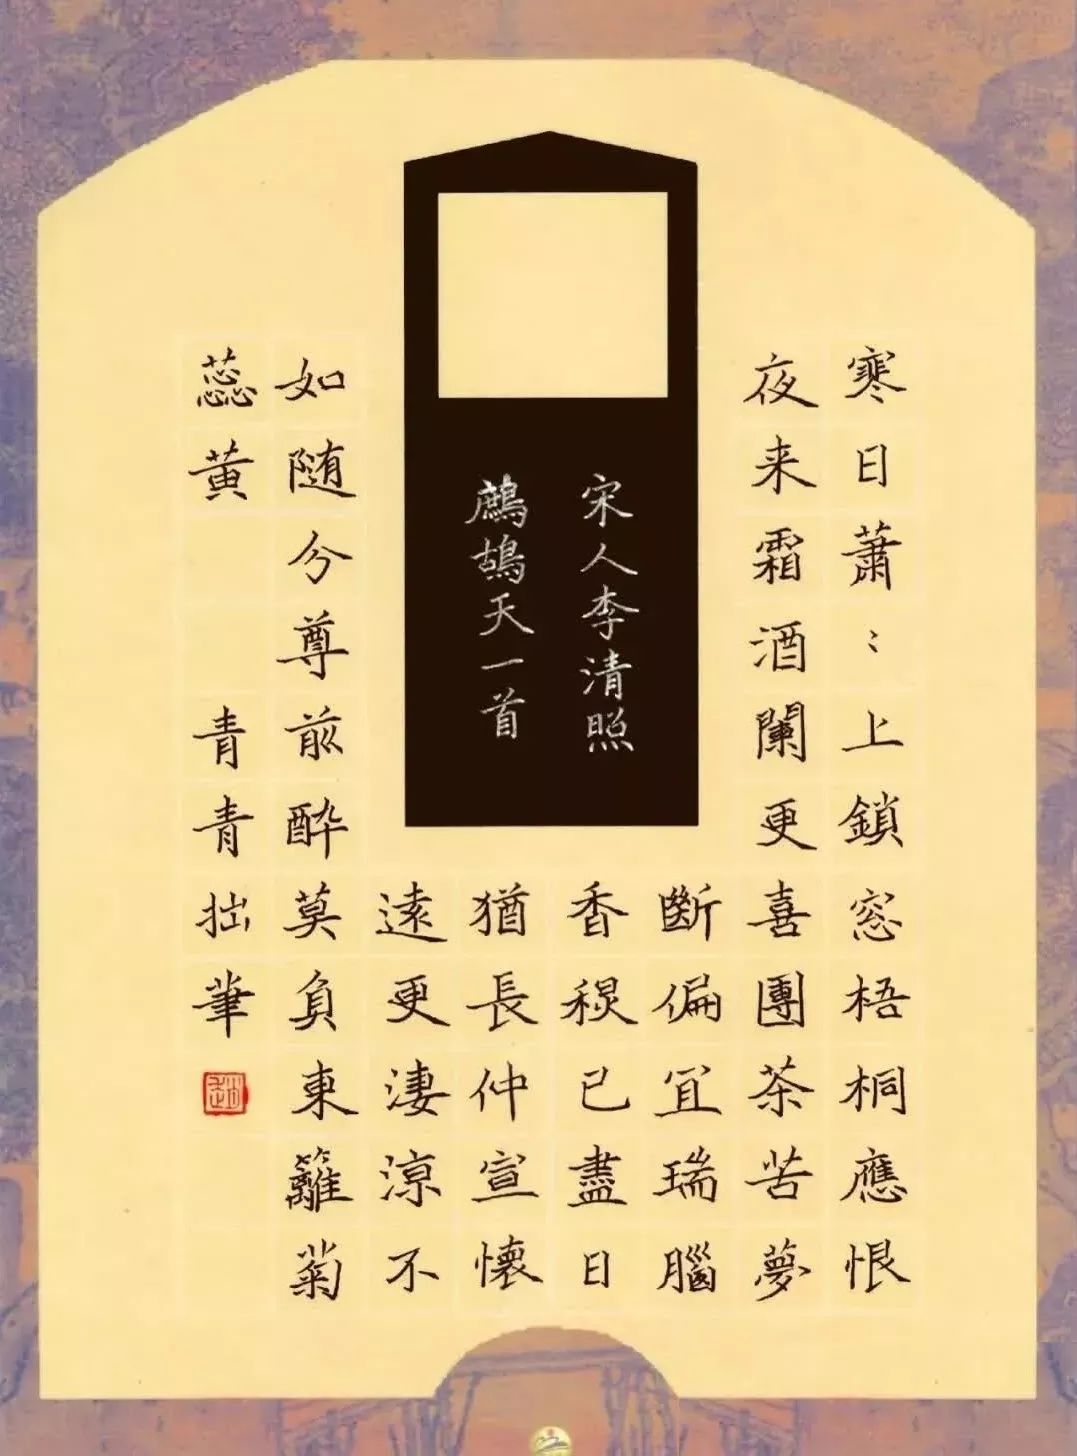 宋人李清照
鷓鴣天一首
寒日蕭〻上鎖窓梧桐應恨
夜来霜酒闌更喜團茶苦夢
斷偏宜瑞腦
香秋已盡日
猶長仲宣懷
遠更淒涼不
如随分尊前醉莫負東籬菊
蕊黄
青青拙筆